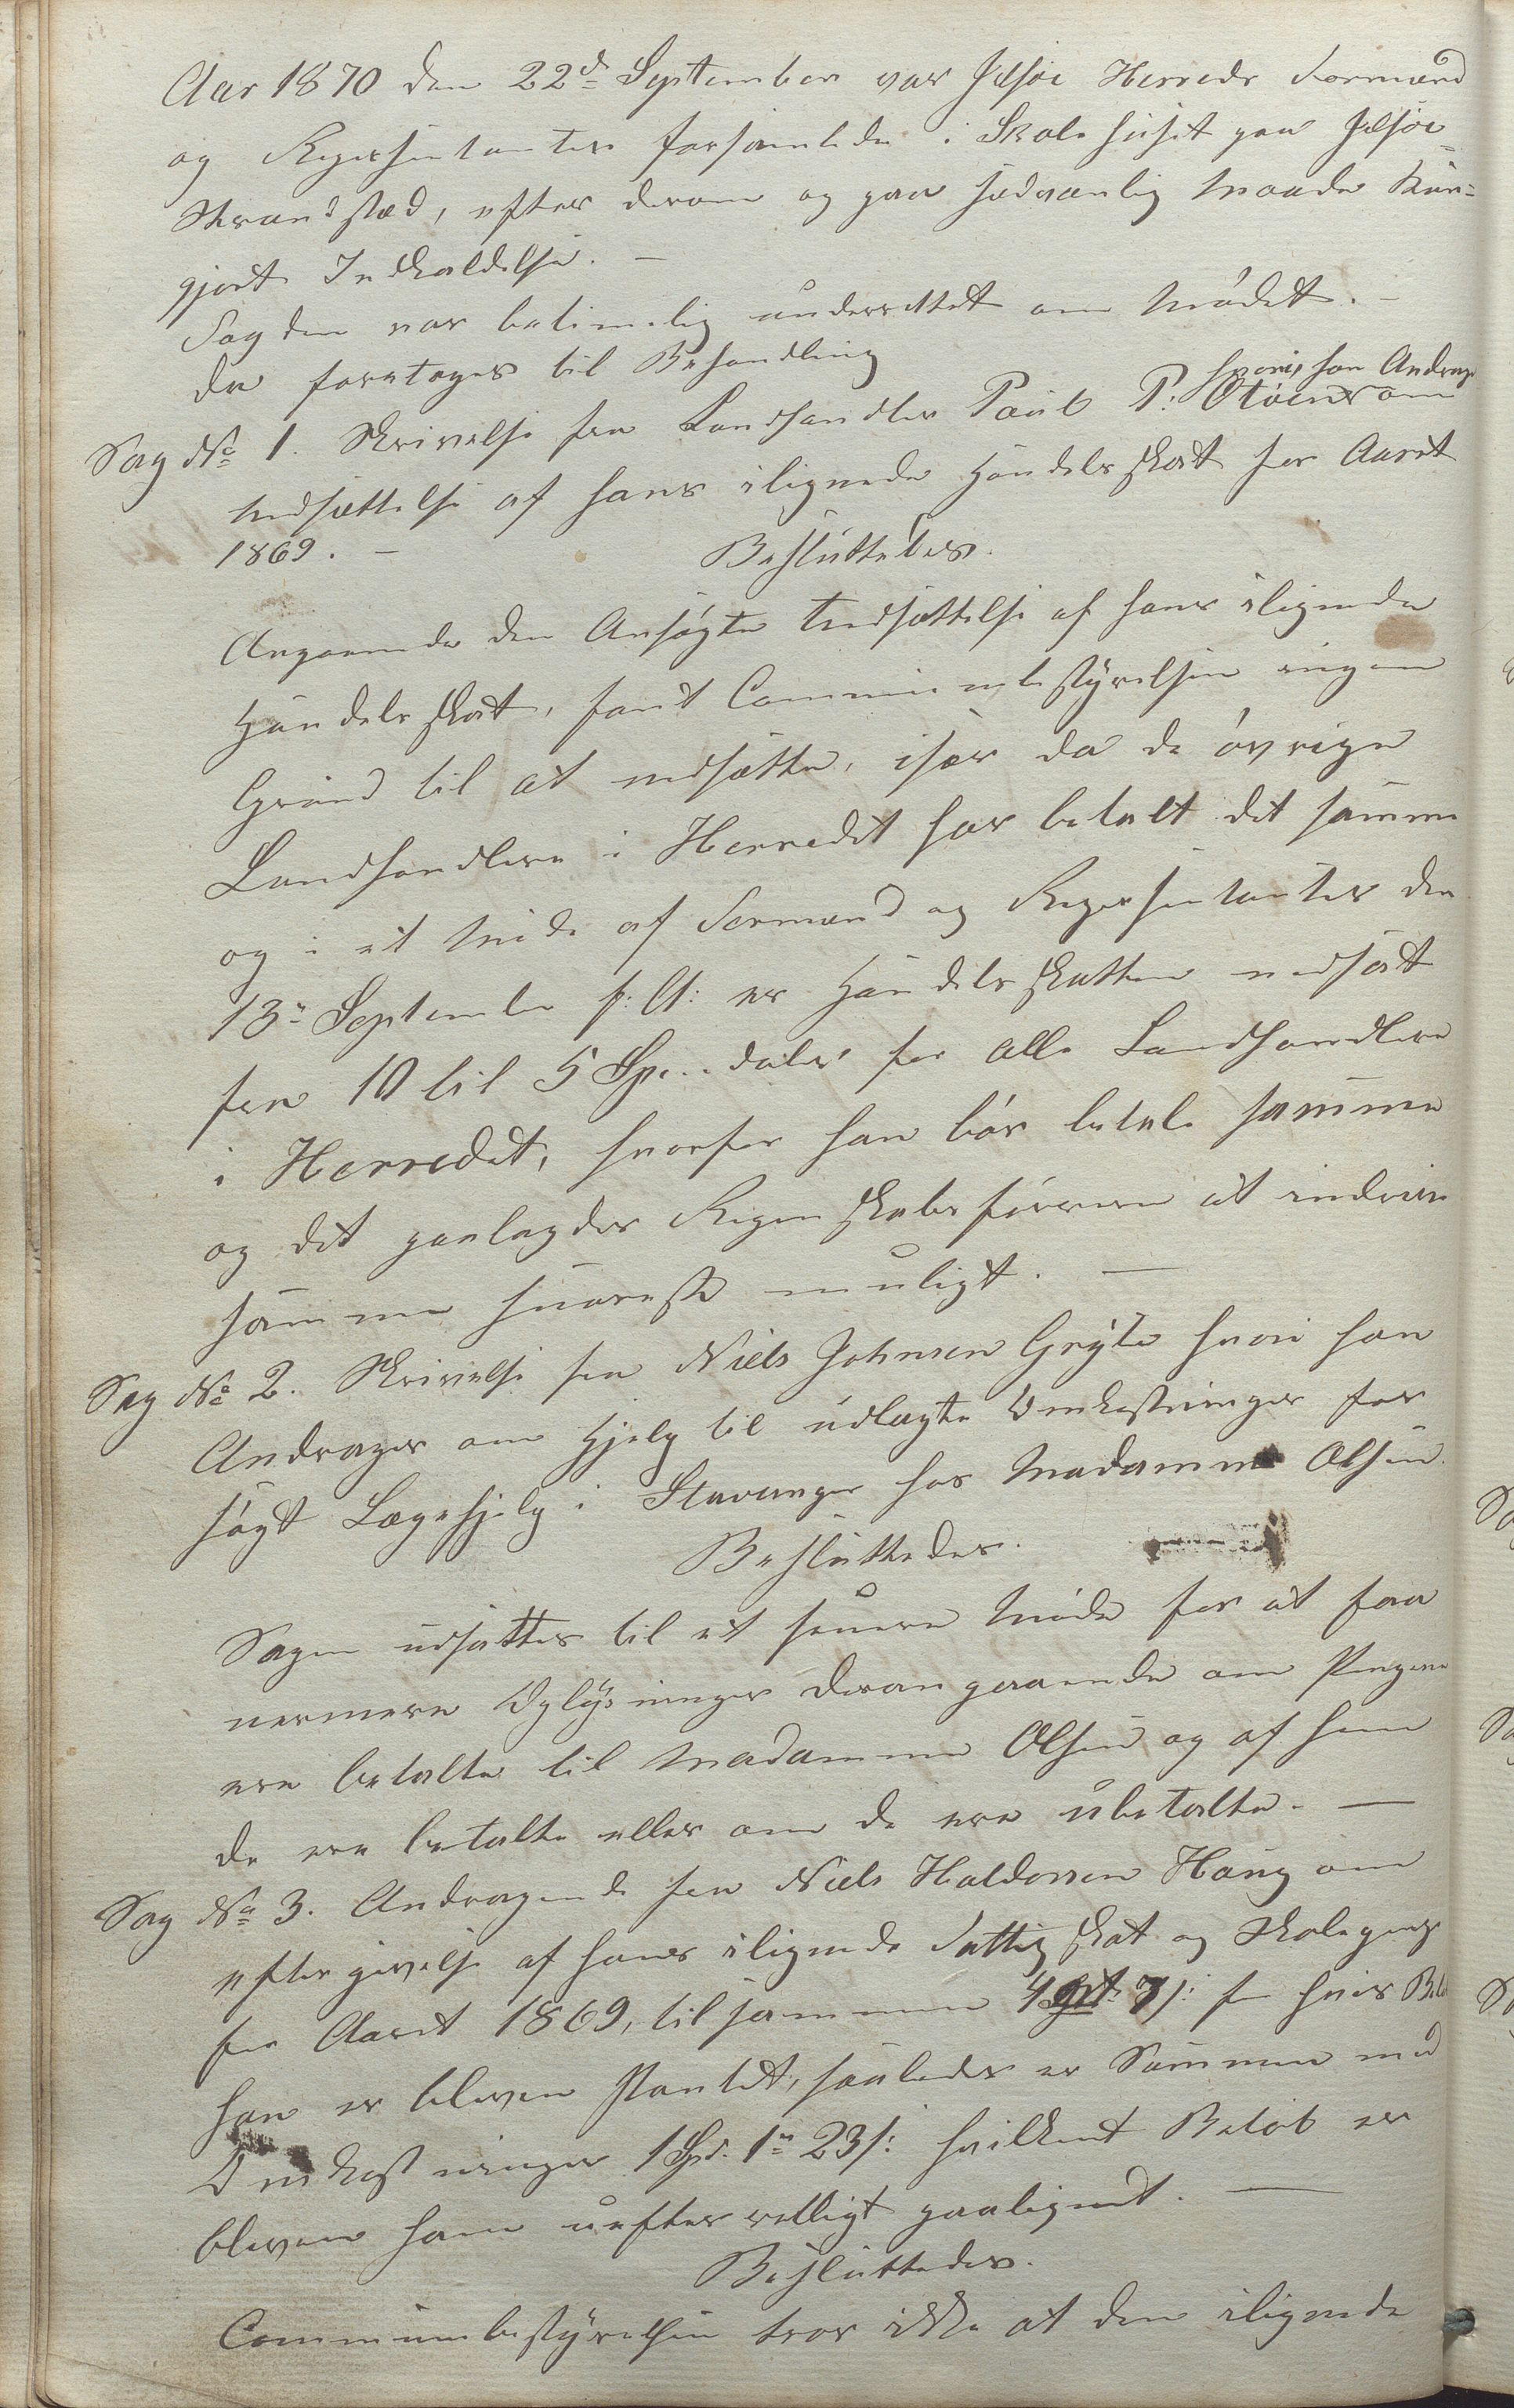 Aar 1870 den 22d September var Jelsøe Herreds Formænd
og Representanter forsamlede i Skolehuset paa Jelsøe
Strandstæd, efter derom og paa sædvanlig Maade kun-
gjort Indkaldelse. —
Fogden var betimelig underrettet om Mødet. —
Da foretoges til Behandling
hvori han Andrager
Sag No 1. Skrivelse fra Landhandler Paul P: om
Nedsættelse af hans ilignede Handelsskat for Aaret
1869. —
Besluttedes.
Angaaende den Ansøgte Nedsættelse af hans ilignede
Handelsskat, fant Communebestyrelsen ingen
Grund til at nedsætte, især da de øvrige
Landhandlere i Herredet har betalt det samme
og i et Møde af Formænd og Representanter den
13de September f: A: er Handelsskatten nedsat
fra 10 til 5 Spe.daler for alle Landhandlere
i Herredet, hvorfor han bør betale samme
og det paalagdes Regenskabsføreren at inddrive
samme snarest muligt. —
Sag No 2. Skrivelse fra Niels Johnsen Gryte hvori han
Andrager om Hjelp til udlagte Omkostninger for
søgt Lægehjelp i Stavanger hos Madamme Olsen.
Besluttedes.
Sagen udsættes til et senere Møde for at faa
nermere Oplysninger derangaaende om Pengene
ere betalte til Madamme Olsen og af hvem
de ere betalte eller om de ere ubetalte. —
Sag No 3. Andragende fra Niels Haldorsen Haug om
eftergivelse af hans ilignede Fattigskat og Skolepenge
for Aaret 1869, tilsammen 4 ort 7 s: for hvis
han er bleven Pantet, saaledes er Summen med
Omkostninger 1 Spd. 1 m 23 s: hvilket Beløb er
bleven ham uefterretligt paalignet. —
Besluttedes.
Communebestyrelsen tror ikke at den ilignede